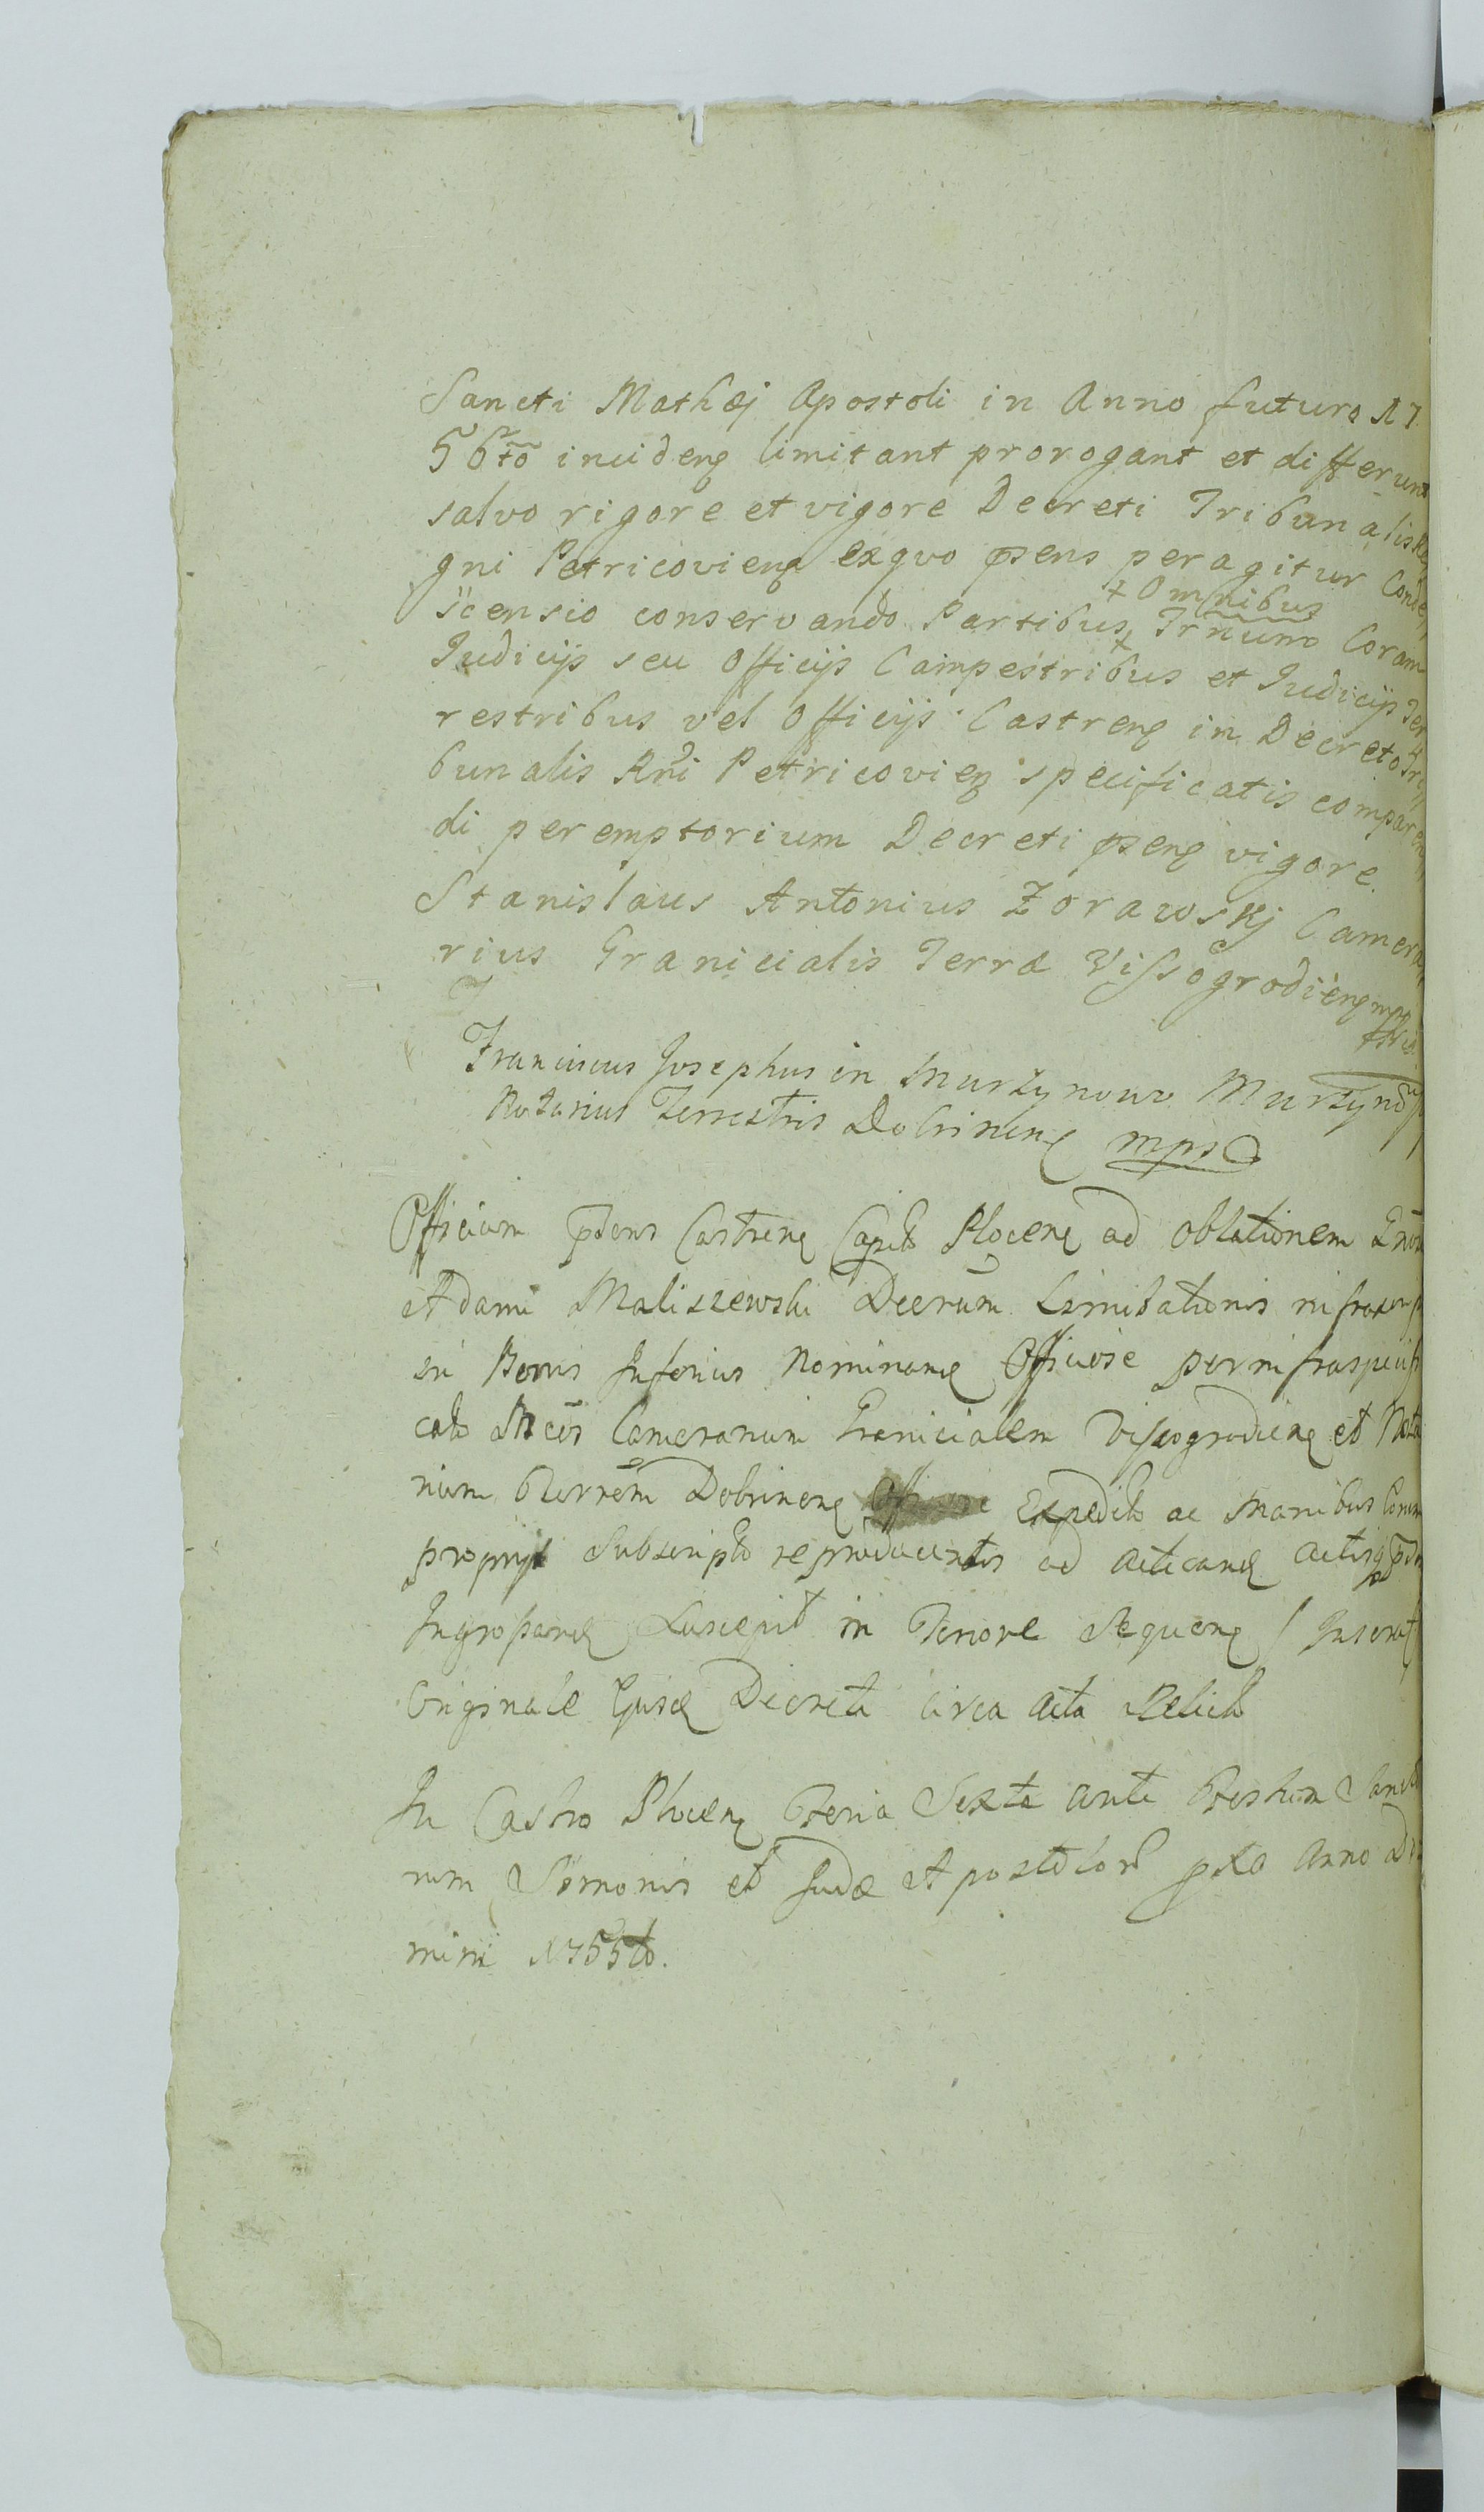 Sancti Mathæj Apostoli in Anno futuro 17
56to incidenꝗ limitant prorogant et differunt
salvo rigore et vigore Decreti Tribunalis Re
gni Petricovienꝗ exqvo pñsens peragitur Conde
scensio conservando Partibus + Trñum̃ Coram
+ Omnibus
Judicijs seu Officijs Campestribus et Judicijs Ter
restribus vel Officijs Castrenꝗ in Decreto Tri
bunalis Rñi Petricovienꝗ specificatis comparen
di peremptorium Decreti pñsenꝗ vigore.
Stanislaus Antonius Zorawskj Camera
rius Granicialis Terræ Vissogrodienꝗ mp
Franciscus Josephus in Murzynowo Murzyno
Notarius Terrestris Dobrinenꝗ mps
Officium pñsens Castrenꝗ Capitle Plocenꝗ ad oblationem Gnõsi
Adami Maliszewski Decretum Limitationis infrascrip
in Bonis Inferius Nominanꝗ Officiose per infraspecifi
catos Mcos Camerarium Granicialem Vissogrodienꝗ et Nota
rium Terrem Dobrinenꝗ Expedito ac Manibus Eorum
proprijs Subscripto reproducentis ad acticanꝗ Actisꝗ
Ingrossanꝗ Suscepit in Tenore Sequenꝗ / Inserat
Originale Ejusꝗ Decreti circa Acta Relict
In Castro Plocenꝗ Feria Sexta ante Festum Sancto
rum Simonis et Judæ Apostolor pxa Anno Do
mini 1755to.